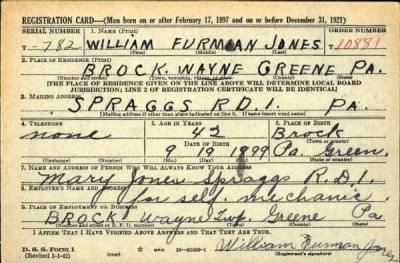 REGISTRATION CARD—(Men born on or after February 17, 1897 and on or before December 31, 1921)
SERIAL NUMBER 1. NAME (Print) ORDER NUMBER
T-782 WILLIAM FURMAN JONES 10881
(First) (Middle) (Last)
2. PLACE OF RESIDENCE (Print)
BROCK. WAYNE GREENE PA.
(Number and street) (Town, township, village, or city) (County) (State)
[THE PLACE OF RESIDENCE GIVEN ON THE LINE ABOVE WILL DETERMINE LOCAL BOARD
JURISDICTION; LINE 2 OF REGISTRATION CERTIFICATE WILL BE IDENTICAL]
3. MAILING ADDRESS
SPRAGGS R.D.1. PA.
[Mailing address if other than place indicated on line 2. If same insert word same]
4. TELEPHONE 5. AGE IN YEARS 6. PLACE OF BIRTH
none 42 Brock
DATE OF BIRTH (Town or county)
9 19 1899 Pa. Green.
(Exchange) (Number) (Mo.) (Day) (Yr.) (State or country)
7. NAME AND ADDRESS OF PERSON WHO WILL ALWAYS KNOW YOUR ADDRESS
Mary Jones Spraggs R.D.1.
8. EMPLOYER'S NAME AND ADDRESS
for self. mechanic.
9. PLACE OF EMPLOYMENT OR BUSINESS
BROCK Wayne Twp. Greene Pa
(Number and street or R. F. D. number) (Town) (County) (State)
I AFFIRM THAT I HAVE VERIFIED ABOVE ANSWERS AND THAT THEY ARE TRUE.
D. S. S. Form 1
(Revised 1-1-42) (over)
William Furman Jones
(Registrant's signature)